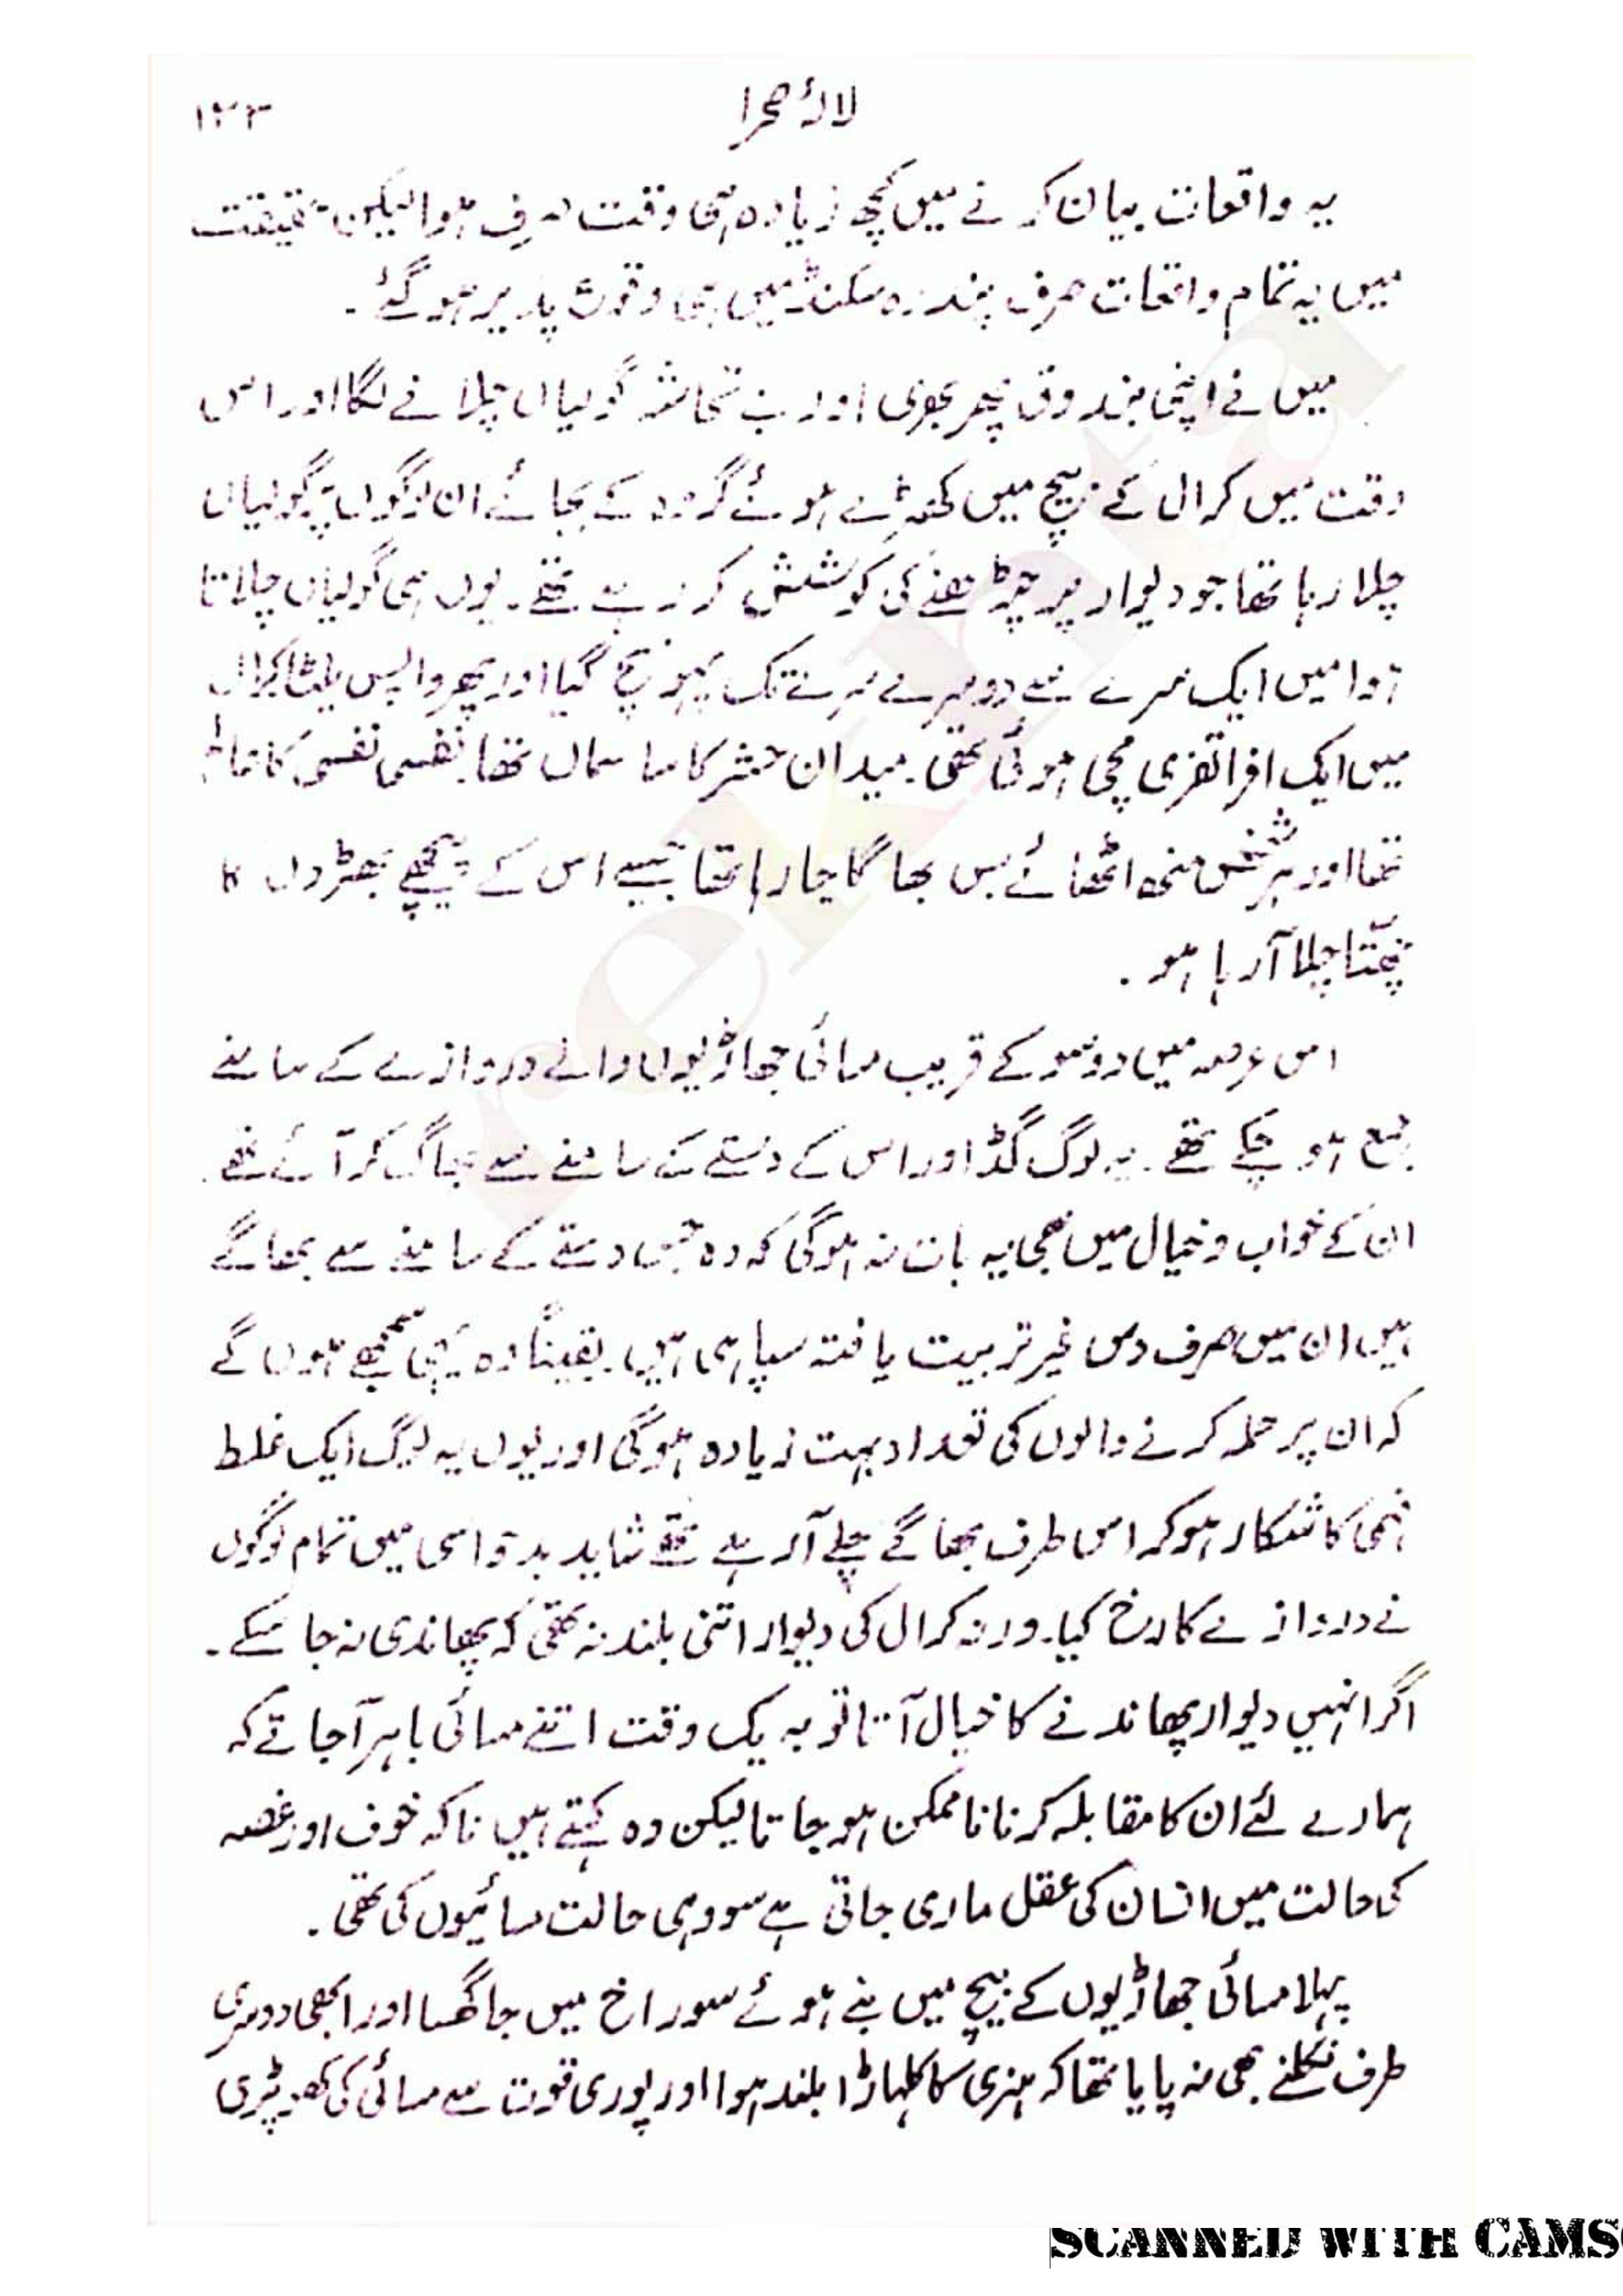 لالۂ صحرا
۱۲۳
یہ واقعات بیان کرنے میں کچھ زیادہ ہی وقت صرف ہوا لیکن حقیقت
میں یہ تمام واقعات صرف پندرہ سکنڈ میں ہی وقوع پذیر ہو گئے ۔
میں نے اپنی بندوق پھر بھری اور بے تحاشہ گولیاں چلانے لگا اور اس
وقت میں کرال کے بیچ میں کھڑے ہوئے گروہ کے بجائے ان لوگوں پر گولیاں
چلا رہا تھا جو دیوار پر چڑھنے کی کوشش کر رہے تھے ۔ یوں ہی گولیاں چلاتا
ہوا میں ایک سرے سے دوسرے سرے تک پہونچ گیا اور پھر واپس پلٹا کرال
میں ایک افراتفری مچی ہوئی تھی ۔ میدان حشر کا سا سماں تھا ۔ نفسی نفسی کا عالم
تھا اور ہر شخص منھ اٹھائے بس بھاگا جا رہا تھا جیسے اس کے پیچھے بھڑوں کا
چھتّا چلا آ رہا ہو ۔
اس عرصہ میں دو سو کے قریب مسائی جھاڑیوں والے دروازے کے سامنے
جمع ہو چکے تھے ۔ یہ لوگ گڈ اور اس کے دستے کے سامنے سے بھاگ کر آئے تھے ۔
ان کے خواب و خیال میں بھی یہ بات نہ ہوگی کہ وہ جس دستے کے سامنے سے بھاگے
ہیں ان میں صرف دس غیر تربیت یافتہ سپاہی ہیں ۔ یقیناً وہ یہی سمجھے ہوں گے
کہ ان پر حملہ کرنے والوں کی تعداد بہت زیادہ ہوگی اور یوں یہ لوگ ایک غلط
فہمی کا شکار ہو کر اس طرف بھاگے چلے آ رہے تھے شاید بدحواسی میں تمام لوگوں
نے دروازے کا رخ کیا ۔ ورنہ کرال کی دیوار اتنی بلند نہ تھی کہ پھاندی نہ جا سکے ۔
اگر انہیں دیوار پھاندنے کا خیال آتا تو بہ یک وقت اتنے مسائی باہر آ جاتے کہ
ہمارے لئے ان کا مقابلہ کرنا ناممکن ہو جاتا لیکن وہ کہتے ہیں نا کہ خوف اور غصہ
کی حالت میں انسان کی عقل ماری جاتی ہے سو وہی حالت مسائیوں کی تھی ۔
پہلا مسائی جھاڑیوں کے بیچ میں بنے ہوئے سوراخ میں جا گھسا اور ابھی دوسری
طرف نکلنے بھی نہ پایا تھا کہ ہنری کا کلہاڑا بلند ہوا اور پوری قوت سے مسائی کی کھوپڑی
rekhta
SCANNED WITH CAMS